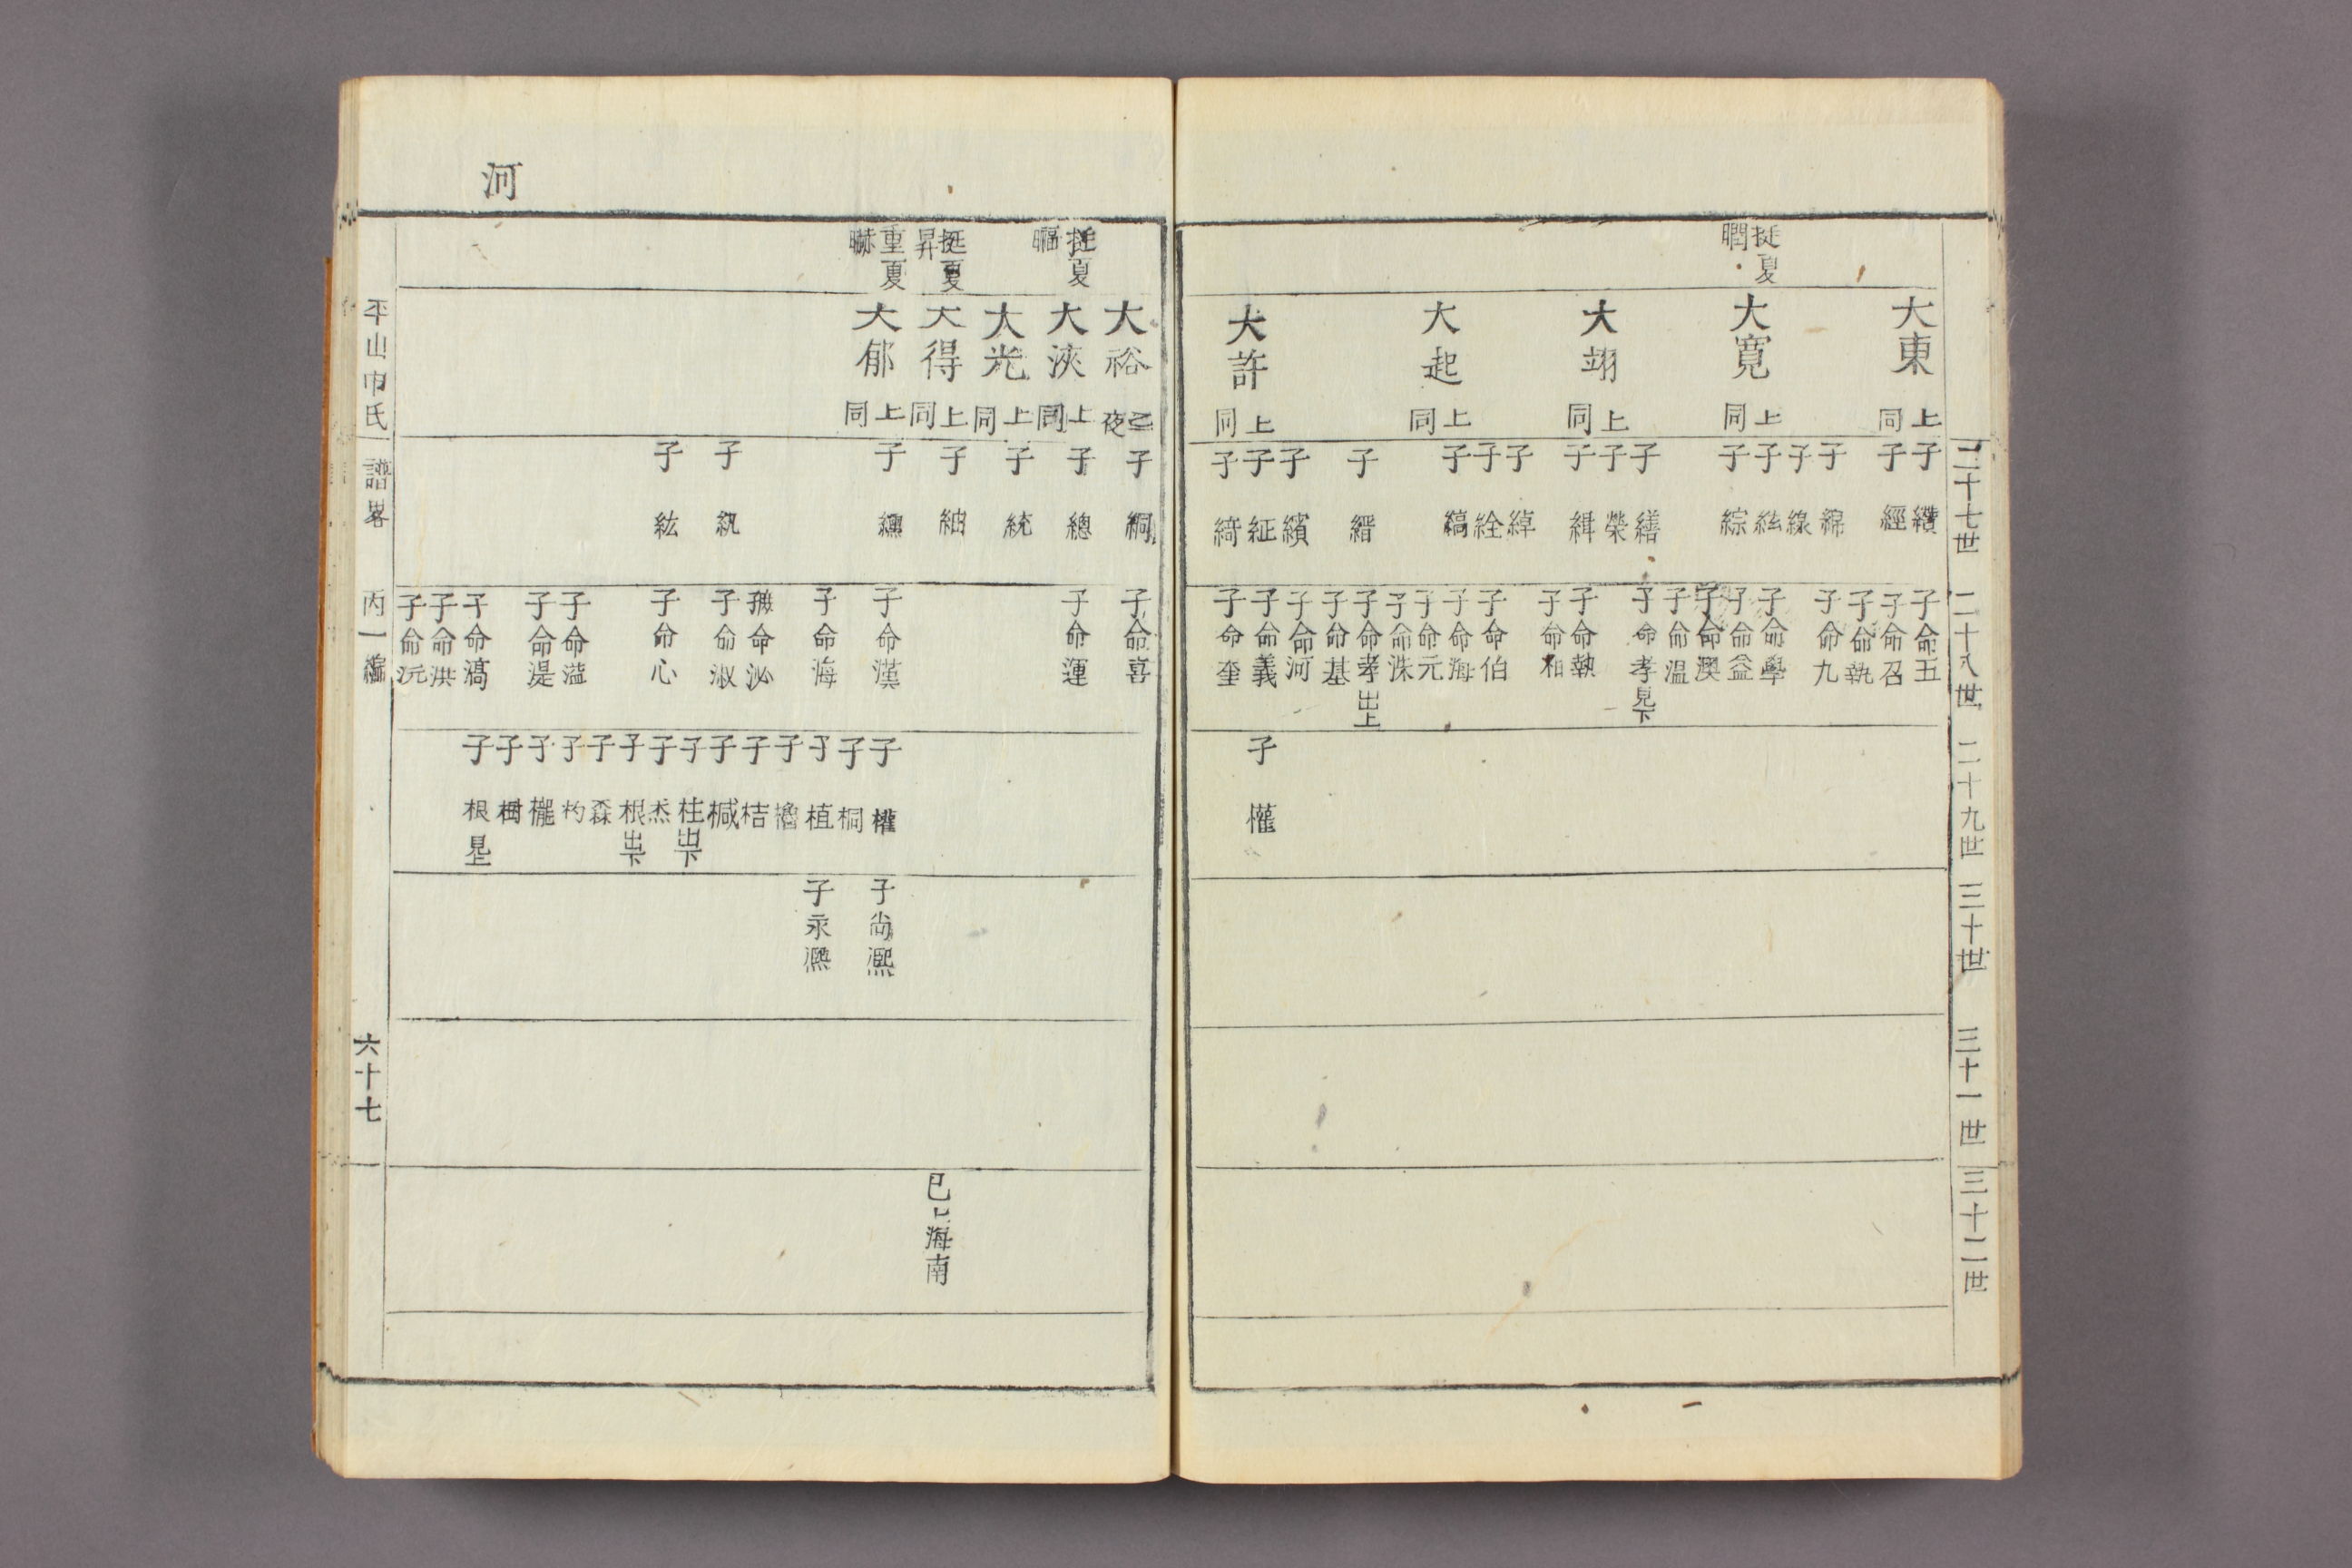 二十七世
二十八世
二十九世
三十世
三十一世
三十二世
挺夏
潤
大東
上同
大寬
上同
大翊
上同
大起
上同
大許
上同
子 纘
子 經
子 綿
子 線
子 紘
子 綜
子 繕
子 榮
子 緝
子 綽
子 絟
子 縞
子 縉
子 繽
子 綎
子 綺
子命五
子命召
子命執
子命九
子命學
子命益
子命澳
子命溫
子命孝見下
子命執
子命和
子命伯
子命海
子命元
子命洙
子命孝出上
子命基
子命河
子命義
子命奎
子 權
河
挺夏
挺夏
昇
重夏
大裕
大浹
上同
大光
上同
大得
上同
大郁
上同
子 絅
子 總
子 統
子 紬
子 纁
子 紈
子 紘
子命喜
子命運
子命漢
子命海
命泌
子命淑
子命心
子命溢
子命湜
子命滈
子命洪
子命沅
子 權
子 桐
子 植
子 櫓
子 桔
子 椷
子 柱出下
子 杰
子 根出下
子 森
子 杓
子 櫳
子 樹
子 根見上
子尙熙
子永熙
已上海南
平山申氏
譜畧
丙一編
六十七